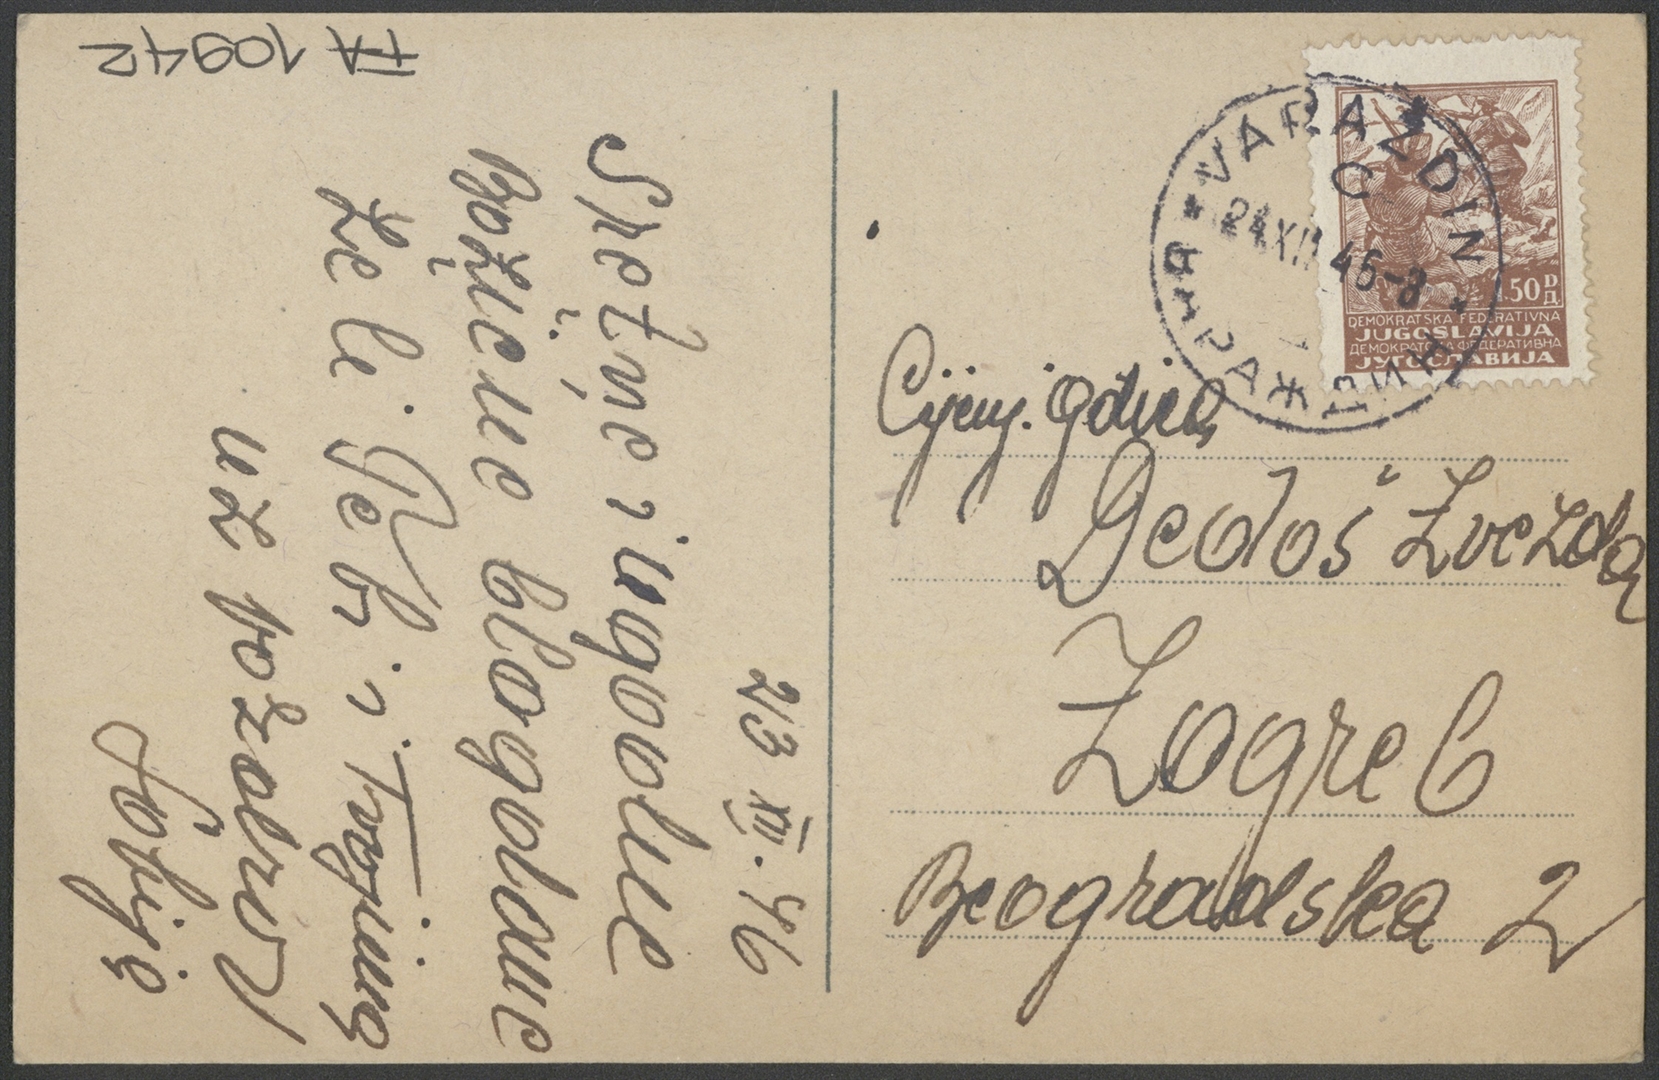 FA 10942
23 XII. 46
Sretne i ugodne
Božićne blagdane
želi Tebi i Tvojima
uz pozdrav
VARAŽDIN
C
24 XII 46-8
ВАРАЖДИН
1.50 D
Д
DEMOKRATSKA FEDERATIVNA
JUGOSLAVIJA
ДЕМОКРАТСКА ФЕДЕРАТИВНА
ЈУГОСЛАВИЈА
Cijenj. gdica
Dedoš Zvezda
Zagreb
Beogradska 2